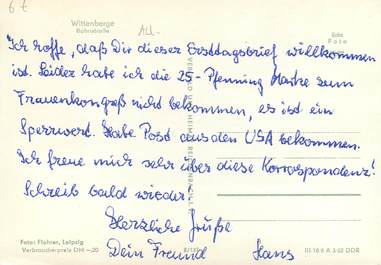 6 €
Wittenberge
Bahnstraße
Echt
Foto
Ich hoffe, daß Dir dieser Ersttagsbrief willkommen
ist. Leider habe ich die 25-Pfenning Marke zum
Frauenkongreß nicht bekommen, es ist ein
Sperrwert. Habe Post aus den USA bekommen.
Ich freue mich sehr über diese Korrespondenz!
Schreib bald wieder
Herzliche Grüße
Dein Freund Hans
Foto: Flohrer, Leipzig
Verbraucherpreis DM -,20
III 18 6 A 3 62 DDR